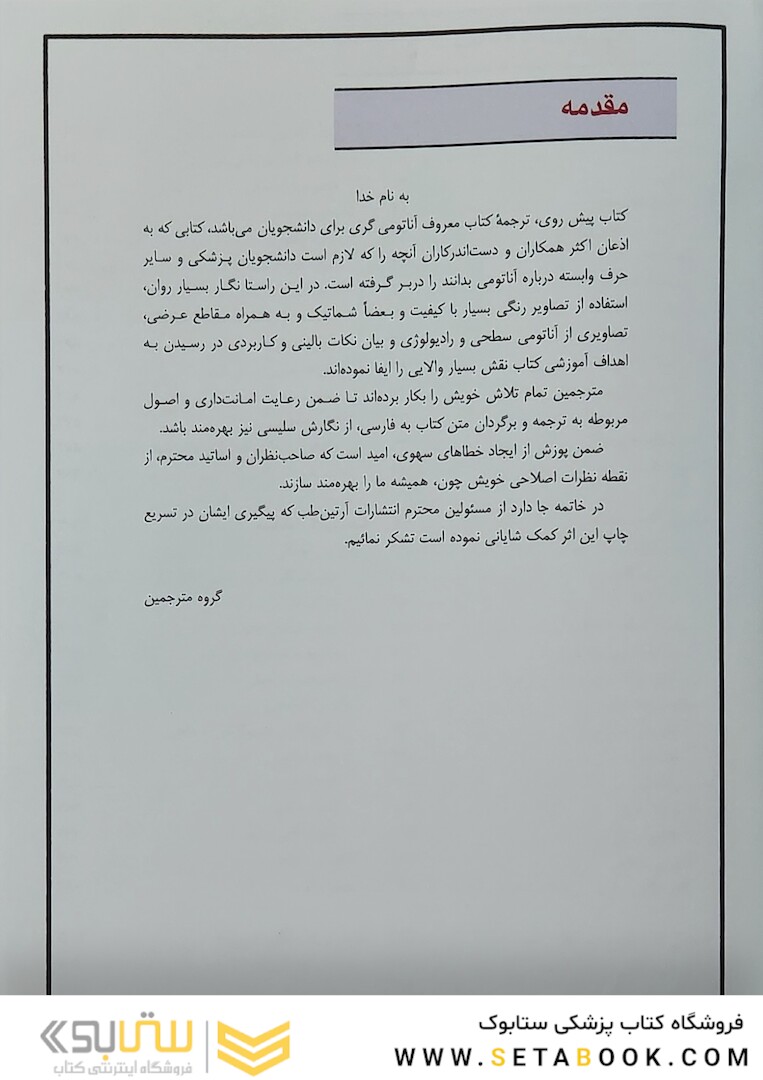 مقدمه
به نام خدا
کتاب پیش روی، ترجمهٔ کتاب معروف آناتومی گری برای دانشجویان می‌باشد، کتابی که به
اذعان اکثر همکاران و دست‌اندرکاران آنچه را که لازم است دانشجویان پزشکی و سایر
حرف وابسته درباره آناتومی بدانند را دربر گرفته است. در این راستا نگار بسیار روان،
استفاده از تصاویر رنگی بسیار با کیفیت و بعضاً شماتیک و به همراه مقاطع عرضی،
تصاویری از آناتومی سطحی و رادیولوژی و بیان نکات بالینی و کاربردی در رسیدن به
اهداف آموزشی کتاب نقش بسیار والایی را ایفا نموده‌اند.
مترجمین تمام تلاش خویش را بکار برده‌اند تا ضمن رعایت امانت‌داری و اصول
مربوطه به ترجمه و برگردان متن کتاب به فارسی، از نگارش سلیسی نیز بهره‌مند باشد.
ضمن پوزش از ایجاد خطاهای سهوی، امید است که صاحب‌نظران و اساتید محترم، از
نقطه نظرات اصلاحی خویش چون، همیشه ما را بهره‌مند سازند.
در خاتمه جا دارد از مسئولین محترم انتشارات آرتین‌طب که پیگیری ایشان در تسریع
چاپ این اثر کمک شایانی نموده است تشکر نمائیم.
گروه مترجمین
فروشگاه کتاب پزشکی ستابوک
WWW.SETABOOK.COM
ستابوک
فروشگاه اینترنتی کتاب